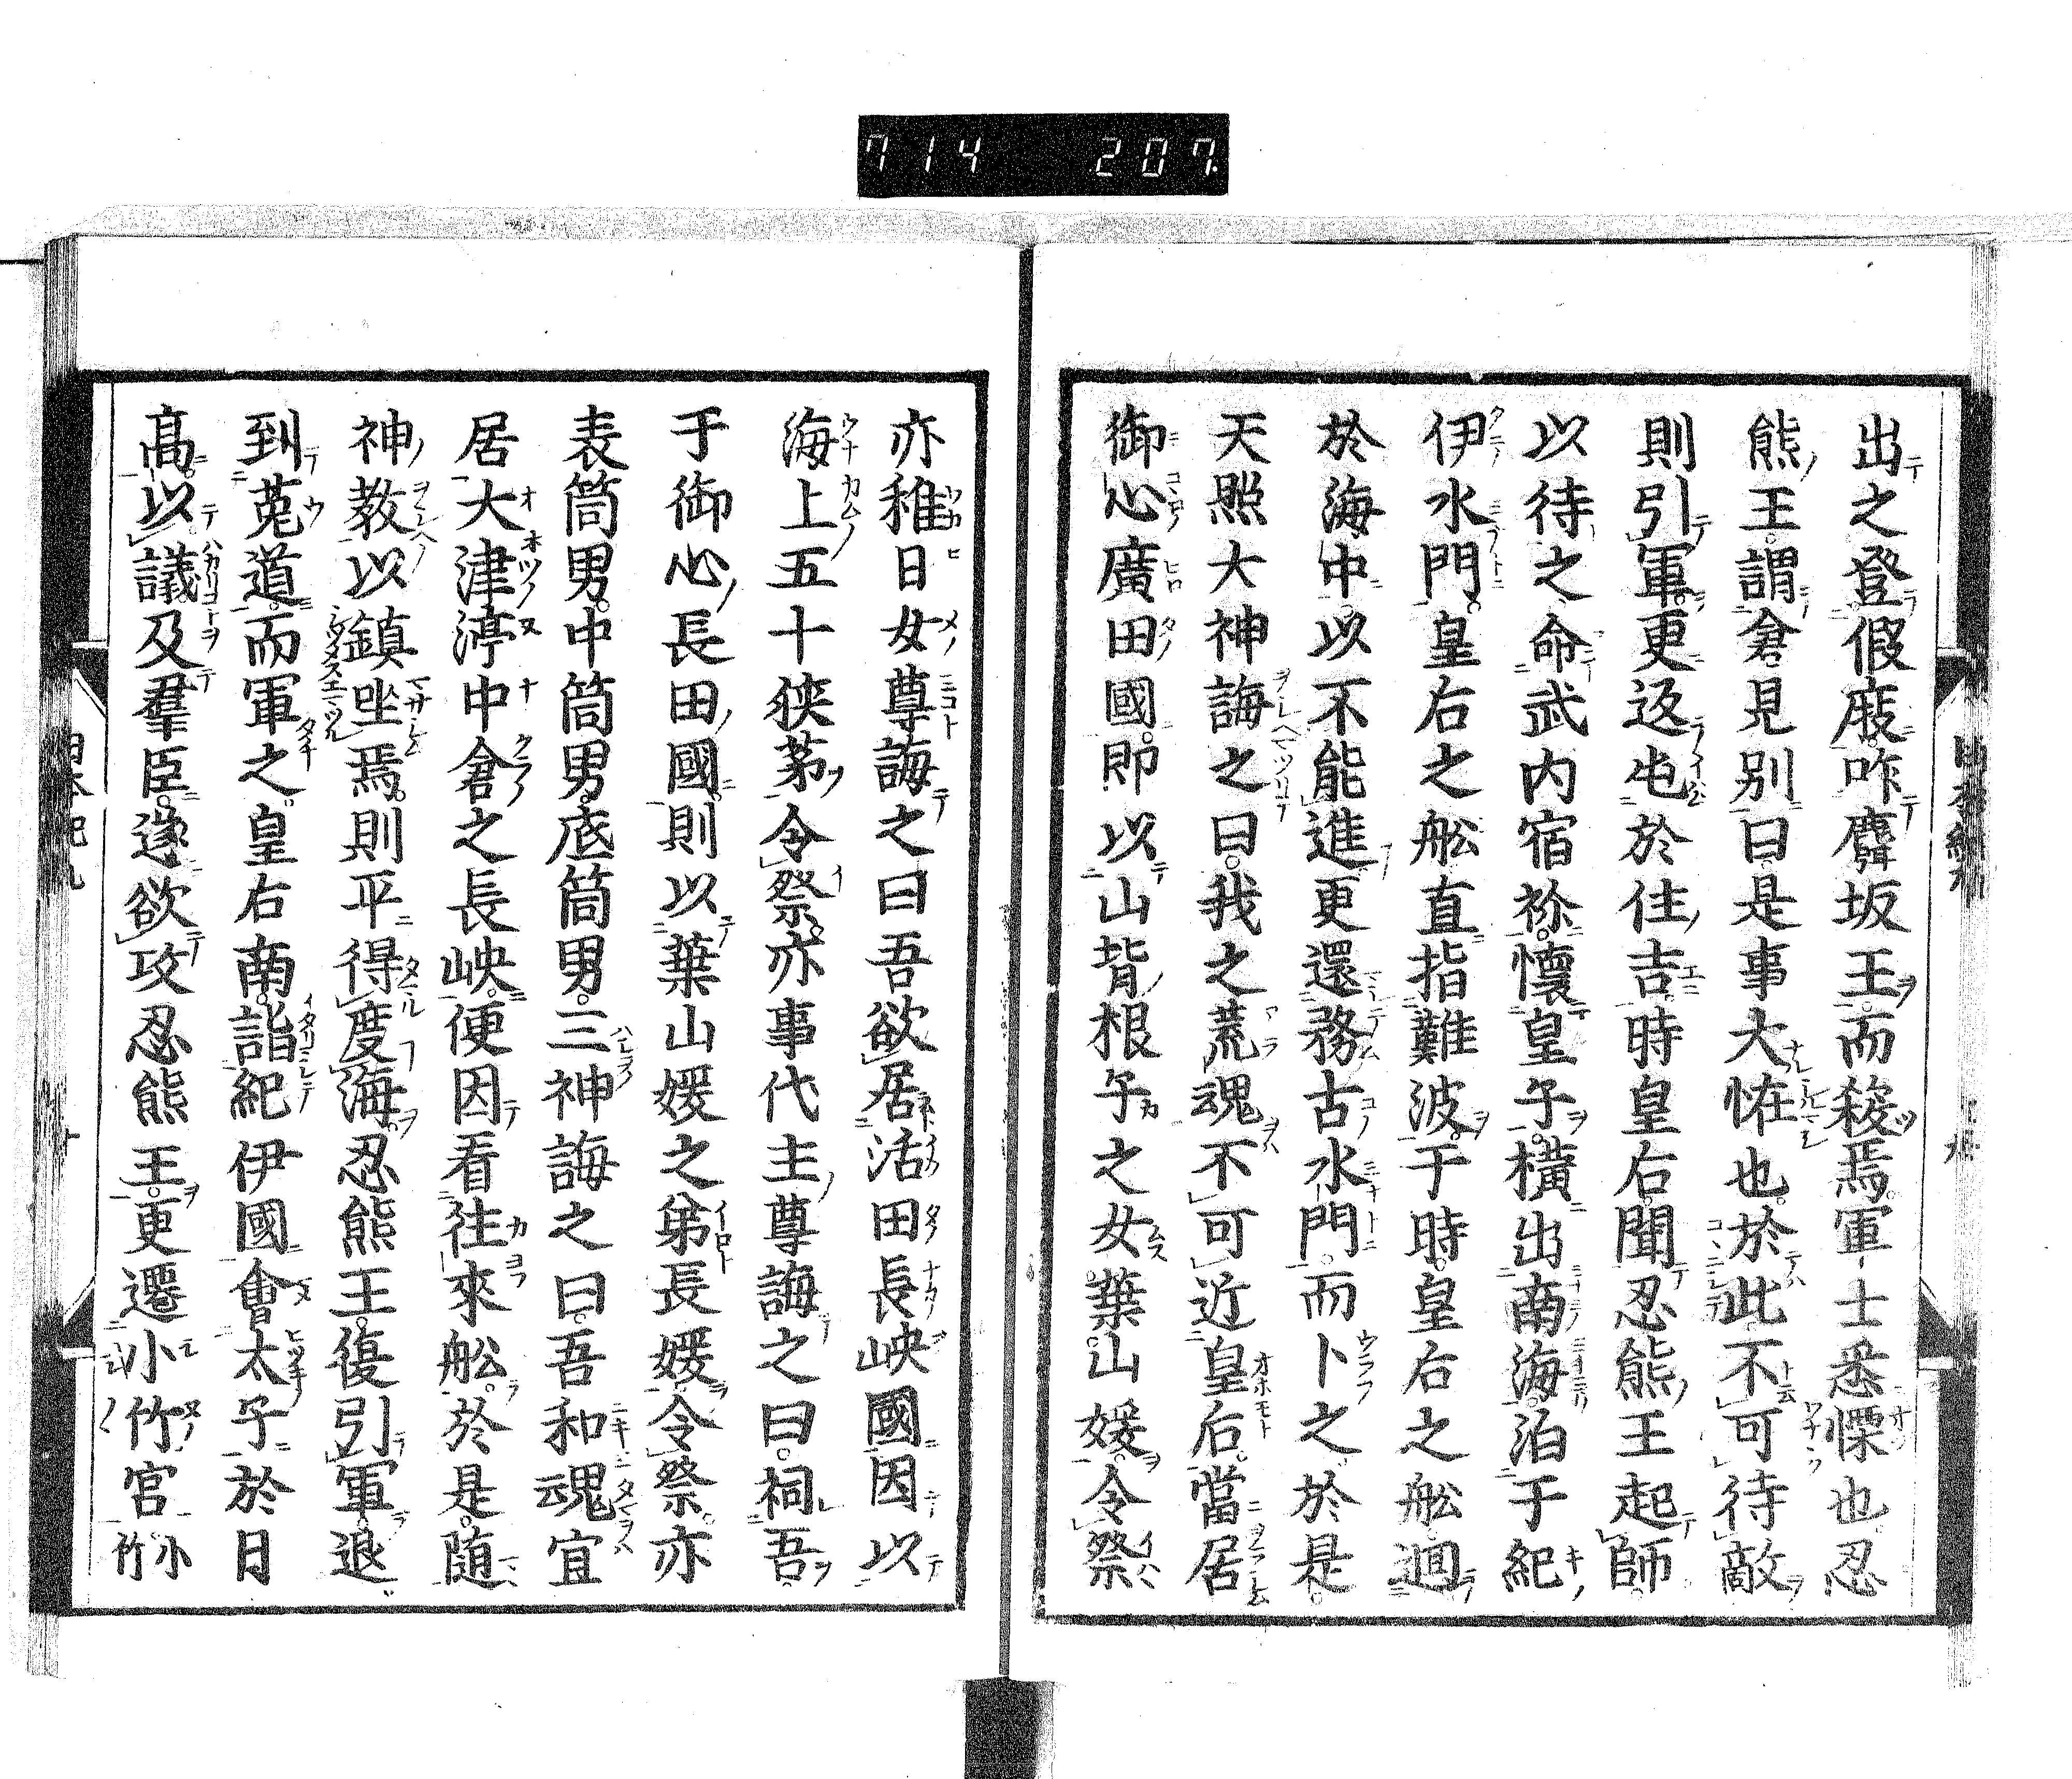 714 207
出之登假庪咋麛坂王而殺焉軍士悉慄也忍
熊王謂倉見別曰是事大恠也於此不可待敵
則引軍更返屯於住吉時皇后聞忍熊王起師
以待之命武内宿祢懷皇子橫出南海泊于紀
伊水門皇后之舩直指難波于時皇后之舩廻
於海中以不能進更還務古水門而卜之於是
天照大神誨之曰我之荒魂不可近皇后當居
御心廣田國即以山背根子之女葉山媛令祭
亦稚日女尊誨之曰吾欲居活田長峽國因以
海上五十狹茅令祭亦事代主尊誨之曰祠吾
于御心長田國則以葉山媛之弟長媛令祭亦
表筒男中筒男底筒男三神誨之曰吾和魂宜
居大津渟中倉之長峽便因看往來舩於是隨
神教以鎮坐焉則平得度海忍熊王復引軍退
到菟道而軍之皇后南詣紀伊國會太子於日
高以議及羣臣遂欲攻忍熊王更遷小竹宮小竹